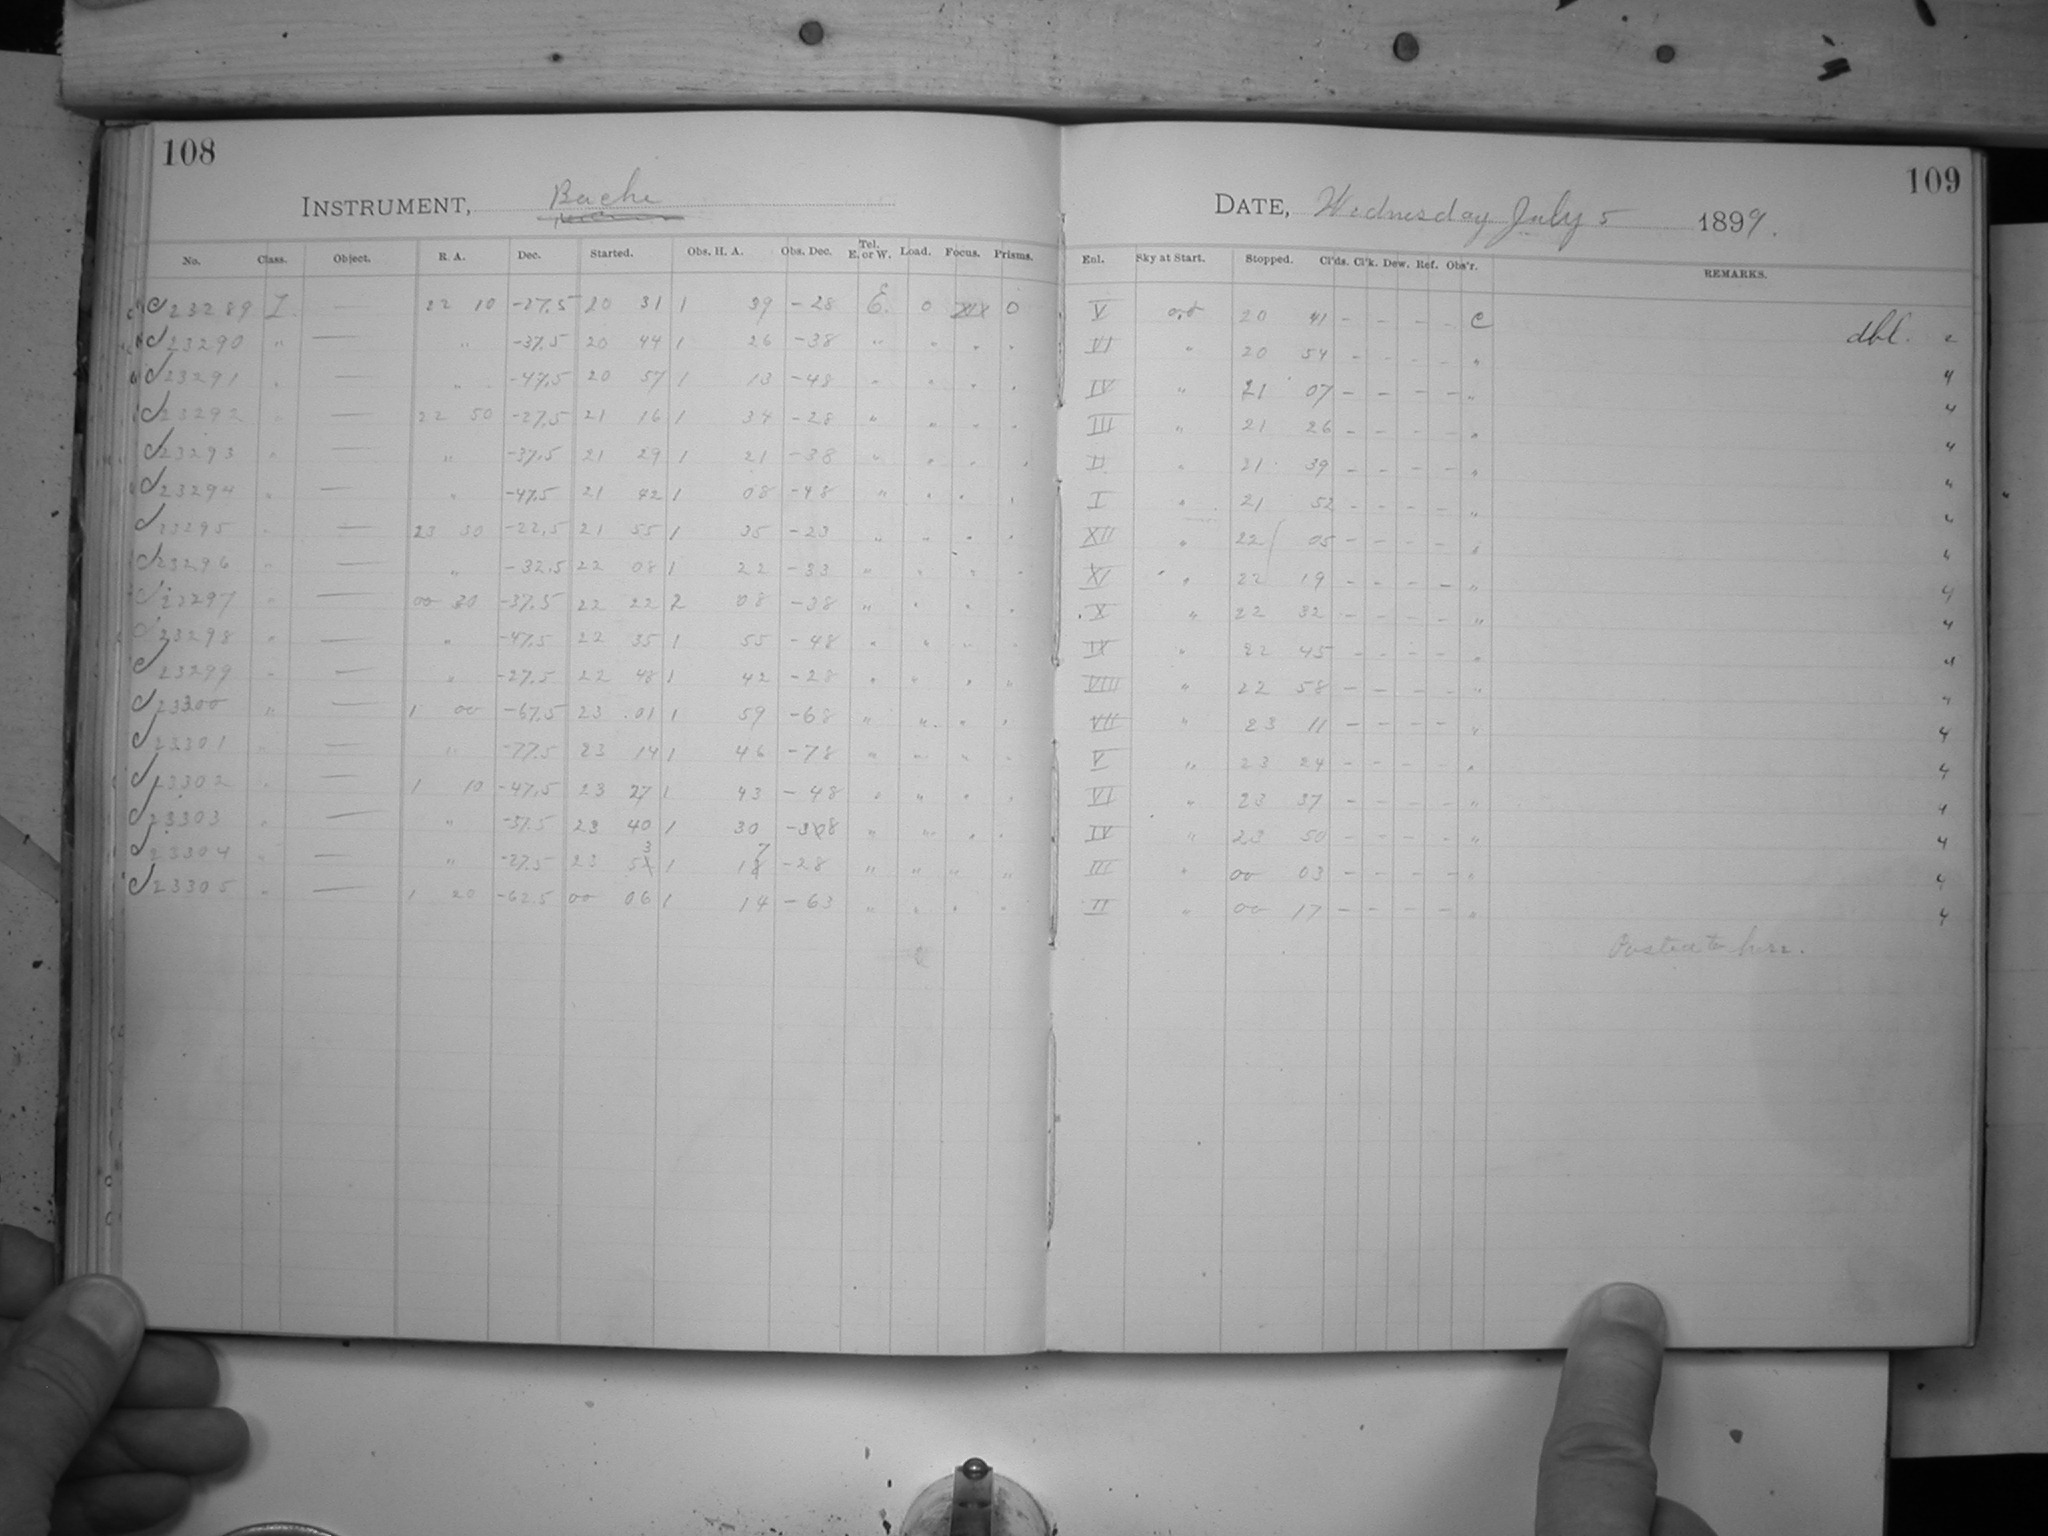 108
INSTRUMENT, Bache
No. Class. Object. R. A. Dec. Started. Obs. H. A. Obs. Dec. Tel. E. or W. Load. Focus. Prisms.
23289 I — 22 10 -27.5 20 31 1 39 -28 E. 0 XIX 0
23290 " — " -37.5 20 44 1 26 -38 " " " "
23291 " — " -47.5 20 57 1 13 -48 " " " "
23292 " — 22 50 -27.5 21 16 1 34 -28 " " " "
23293 " — " -37.5 21 29 1 21 -38 " " " "
23294 " — " -47.5 21 42 1 08 -48 " " " "
23295 " — 23 30 -22.5 21 55 1 35 -23 " " " "
23296 " — " -32.5 22 08 1 22 -33 " " " "
23297 " — 00 30 -37.5 22 22 2 08 -38 " " " "
23298 " — " -47.5 22 35 1 55 -48 " " " "
23299 " — " -27.5 22 48 1 42 -28 " " " "
23300 " — 1 00 -67.5 23 01 1 59 -68 " " " "
23301 " — " -77.5 23 14 1 46 -78 " " " "
23302 " — 1 10 -47.5 23 27 1 43 -48 " " " "
23303 " — " -37.5 23 40 1 30 -38 " " " "
23304 " — " -27.5 23 53 1 17 -28 " " " "
23305 " — 1 20 -62.5 00 06 1 14 -63 " " " "
109
DATE, Wednesday July 5 1899.
Enl. Sky at Start. Stopped. Cl'ds. Cl'k. Dew. Ref. Obs'r. REMARKS.
V 20 41 - - - - C dbl.
VI " 20 54 - - - - " 4
IV " 21 07 - - - - " 4
III " 21 26 - - - - " 4
II " 21 39 - - - - " 4
I " 21 52 - - - - " 4
XII " 22 05 - - - - " 4
XI " 22 19 - - - - " 4
X " 22 32 - - - - " 4
IX " 22 45 - - - - " 4
VIII " 22 58 - - - - " 4
VII " 23 11 - - - - " 4
V " 23 24 - - - - " 4
VI " 23 37 - - - - " 4
IV " 23 50 - - - - " 4
III " 00 03 - - - - " 4
II " 00 17 - - - - " 4
Posted to here.